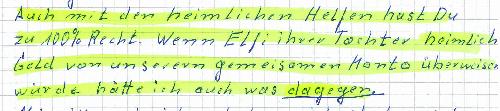 Auch mit den heimlichen Helfen hast Du
zu 100% Recht. Wenn Elfi ihrer Tochter heimlich
Geld von unserem gemeisamen Konto überweisen
würde hätte ich auch was dagegen.